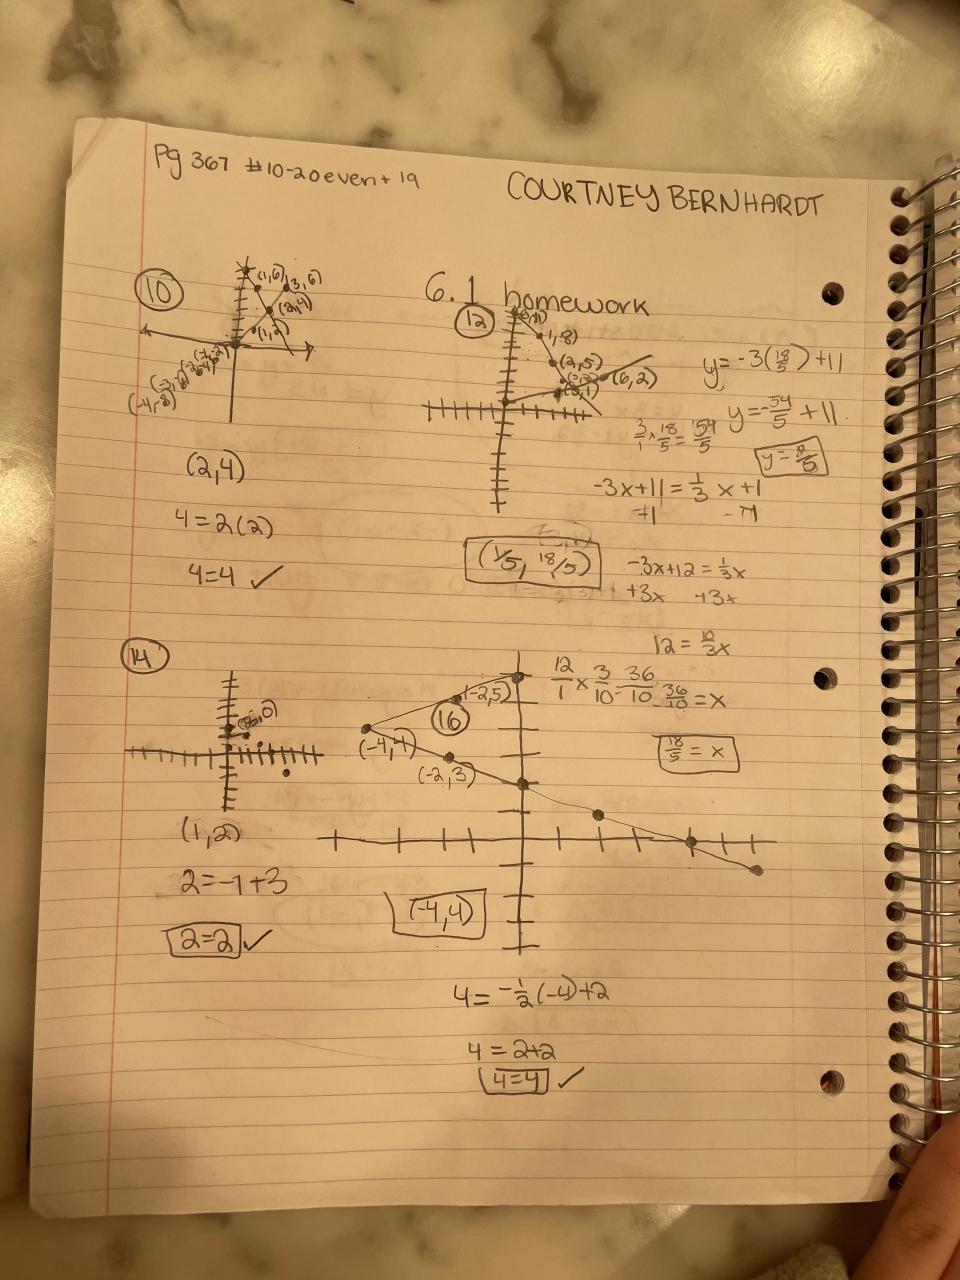 Pg 367 #10-20 even + 19
COURTNEY BERNHARDT
6.1 homework
10
(1,6)
(3,6)
(2,4)
(1,2)
(-4,-8)
(2,4)
4=2(2)
4=4 ✓
12
(0,11)
1,8)
(2,5)
(6,2)
(3,1)
y=-3(18/5)+11
y=-54/5+11
3/1 x 18/5 = 54/5
-3x+11=1/3 x+1
-3x+12=1/3x
+3x +3x
12=10/3x
12/1 x 3/10 = 36/10
36/10 = x
18/5 = x
(1/5, 18/5)
14
(1,2)
2=-1+3
2=2 ✓
16
(-2,5)
(-4,4)
(-2,3)
(-4,4)
4=-1/2(-4)+2
4=2+2
4=4 ✓